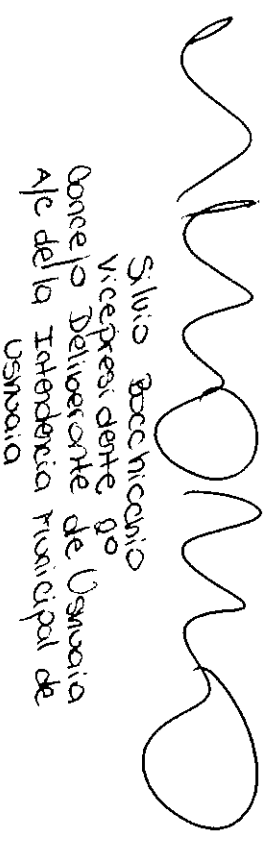 Silvio Bocchicchio
Vicepresidente 2º
Concejo Deliberante de Ushuaia
A/C de la Intendencia Municipal de
Ushuaia